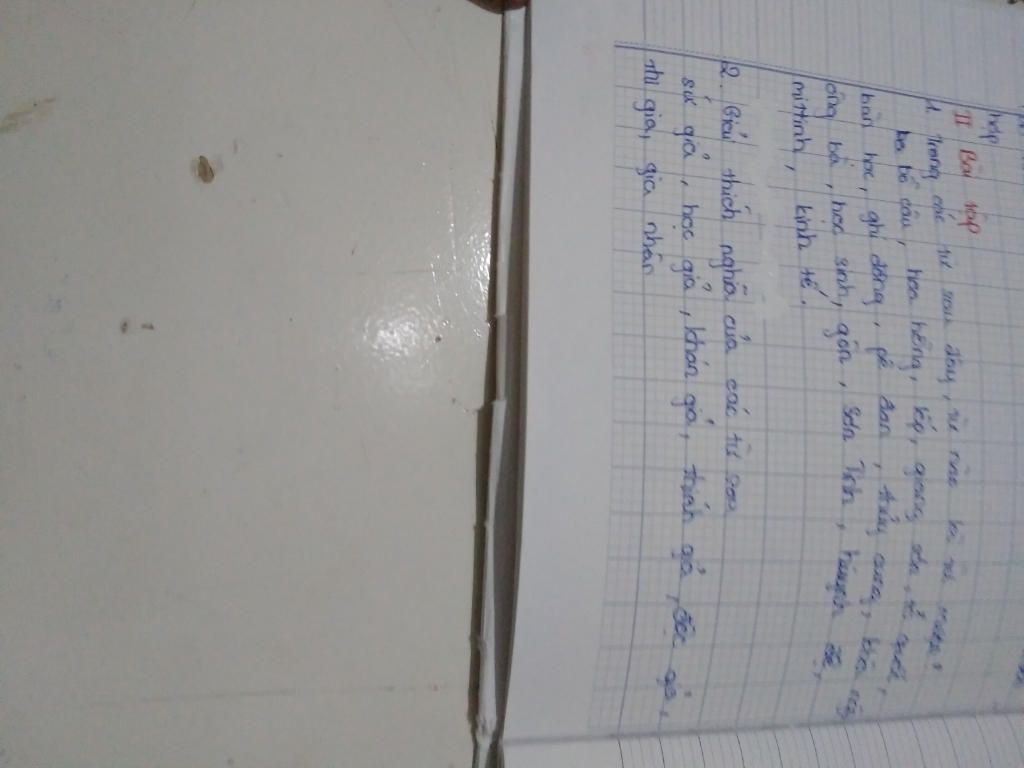 hợp
II Bài tập
1. Trong các từ sau đây, từ nào là từ mượn?
bồ câu, hoa hồng, lốp, giang sơn, tổ quốc,
bàn học, ghi đông, pê đan,
ông bà, học sinh, gôn, Sơn Tinh, huynh đệ,
mittinh, kinh tế.
2. Giải thích nghĩa của các từ sau
sứ giả, học giả, khán giả, thính giả, độc giả,
gia nhân